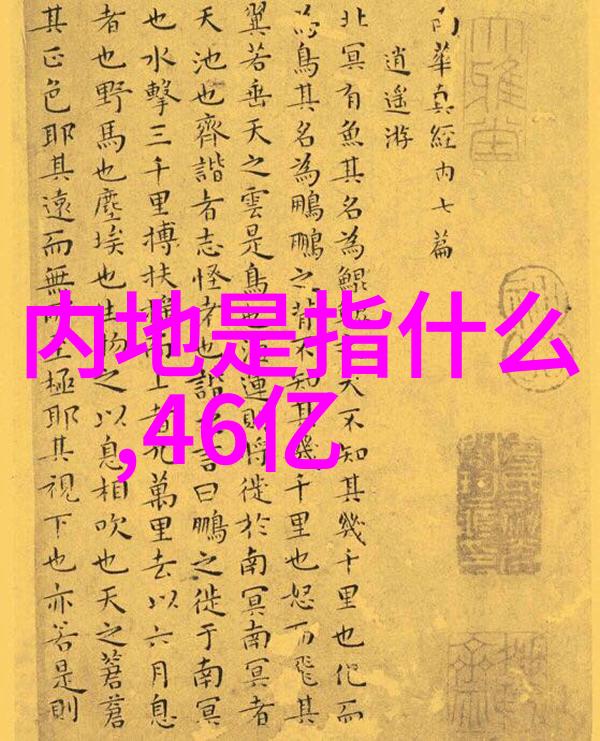 南華真經内七篇
逍遥游
北冥有魚其名為鯤大不知其幾千里也化而
為鳥其名為鵬鵬之背不知其幾千里也怒而飛其
翼若垂天之雲是鳥也海運則將徙於南冥南冥者
天池也齊諧者志怪者也諧之言曰鵬之徙于南冥
也水擊三千里搏扶摇而上者九萬里去以六月息
者也野馬也塵埃也生物之以息相吹也天之蒼蒼
其正色耶其遠而無所至極耶其視下也亦若是則
内地是指什么
,46亿